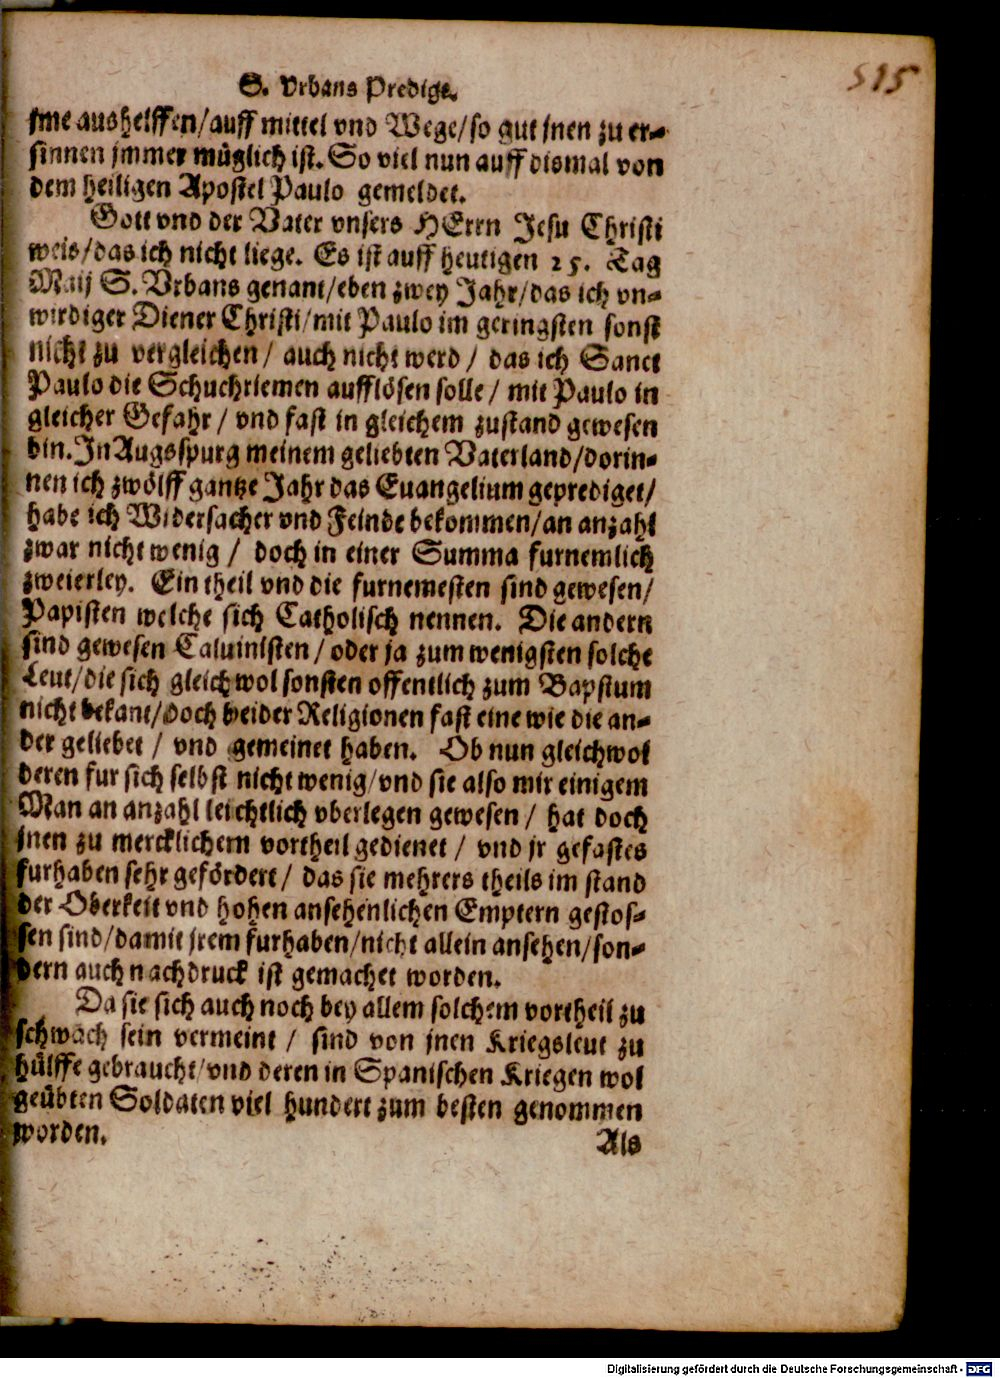 S. Vrbans Predigt.
515
jme aushelffen/auff mittel vnd Wege/so gut jnen zu er-
sinnen jmmer müglich ist. So viel nun auff dismal von
dem heiligen Apostel Paulo gemeldet.
Gott vnd der Vater vnsers HErrn Jesu Christi
weis/das ich nicht liege. Es ist auff heutigen 25. Tag
Maij S. Vrbans genant/eben zwey Jahr/das ich vn-
wirdiger Diener Christi/mit Paulo im geringsten sonst
nicht zu vergleichen/ auch nicht werd/ das ich Sanct
Paulo die Schuchriemen aufflösen solle/ mit Paulo in
gleicher Gefahr/ vnd fast in gleichem zustand gewesen
bin. In Augsspurg meinem geliebten Vaterland/dorin-
nen ich zwölff gantze Jahr das Euangelium geprediget/
habe ich Widersacher vnd Feinde bekommen/an anzahl
zwar nicht wenig/ doch in einer Summa furnemlich
zweierley. Ein theil vnd die furnemesten sind gewesen/
Papisten welche sich Catholisch nennen. Die andern
sind gewesen Caluinisten/ oder ja zum wenigsten solche
Leut/die sich gleichwol sonsten offentlich zum Bapstum
nicht bekant/doch beider Religionen fast eine wie die an-
der geliebet/ vnd gemeinet haben. Ob nun gleichwol
deren fur sich selbst nicht wenig/vnd sie also mir einigem
Man an anzahl leichtlich vberlegen gewesen/ hat doch
jnen zu mercklichem vortheil gedienet/ vnd jr gefastes
furhaben sehr gefördert/ das sie mehrers theils im stand
der Oberkeit vnd hohen ansehenlichen Emptern gestos-
sen sind/damit jrem furhaben/nicht allein ansehen/son-
dern auch nachdruck ist gemachet worden.
Da sie sich auch noch bey allem solchem vortheil zu
schwach sein vermeint/ sind von jnen Kriegsleut zu
hülffe gebraucht/vnd deren in Spanischen Kriegen wol
geübten Soldaten viel hundert zum besten genommen
worden.
Als
Digitalisierung gefördert durch die Deutsche Forschungsgemeinschaft - DFG